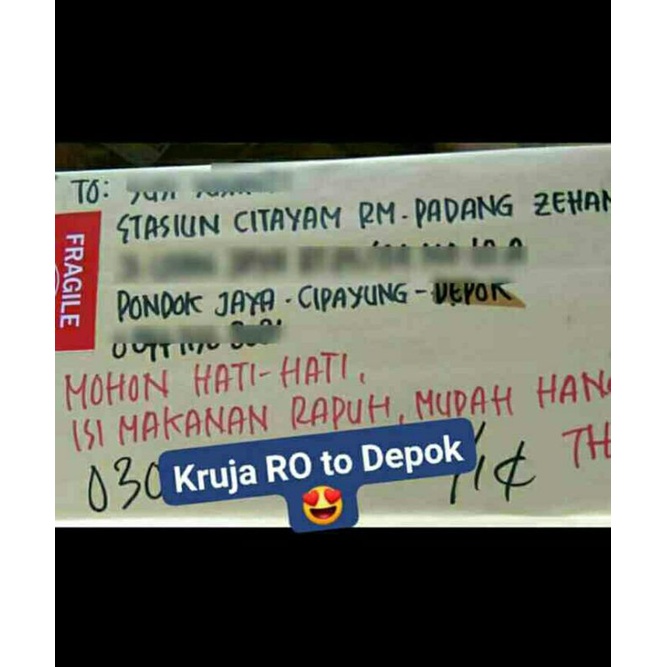 TO:
STASIUN CITAYAM RM. PADANG ZEHAN
FRAGILE
PONDOK JAYA - CIPAYUNG - DEPOK
MOHON HATI-HATI,
ISI MAKANAN RAPUH, MUDAH HAN
TH
030
Kruja RO to Depok